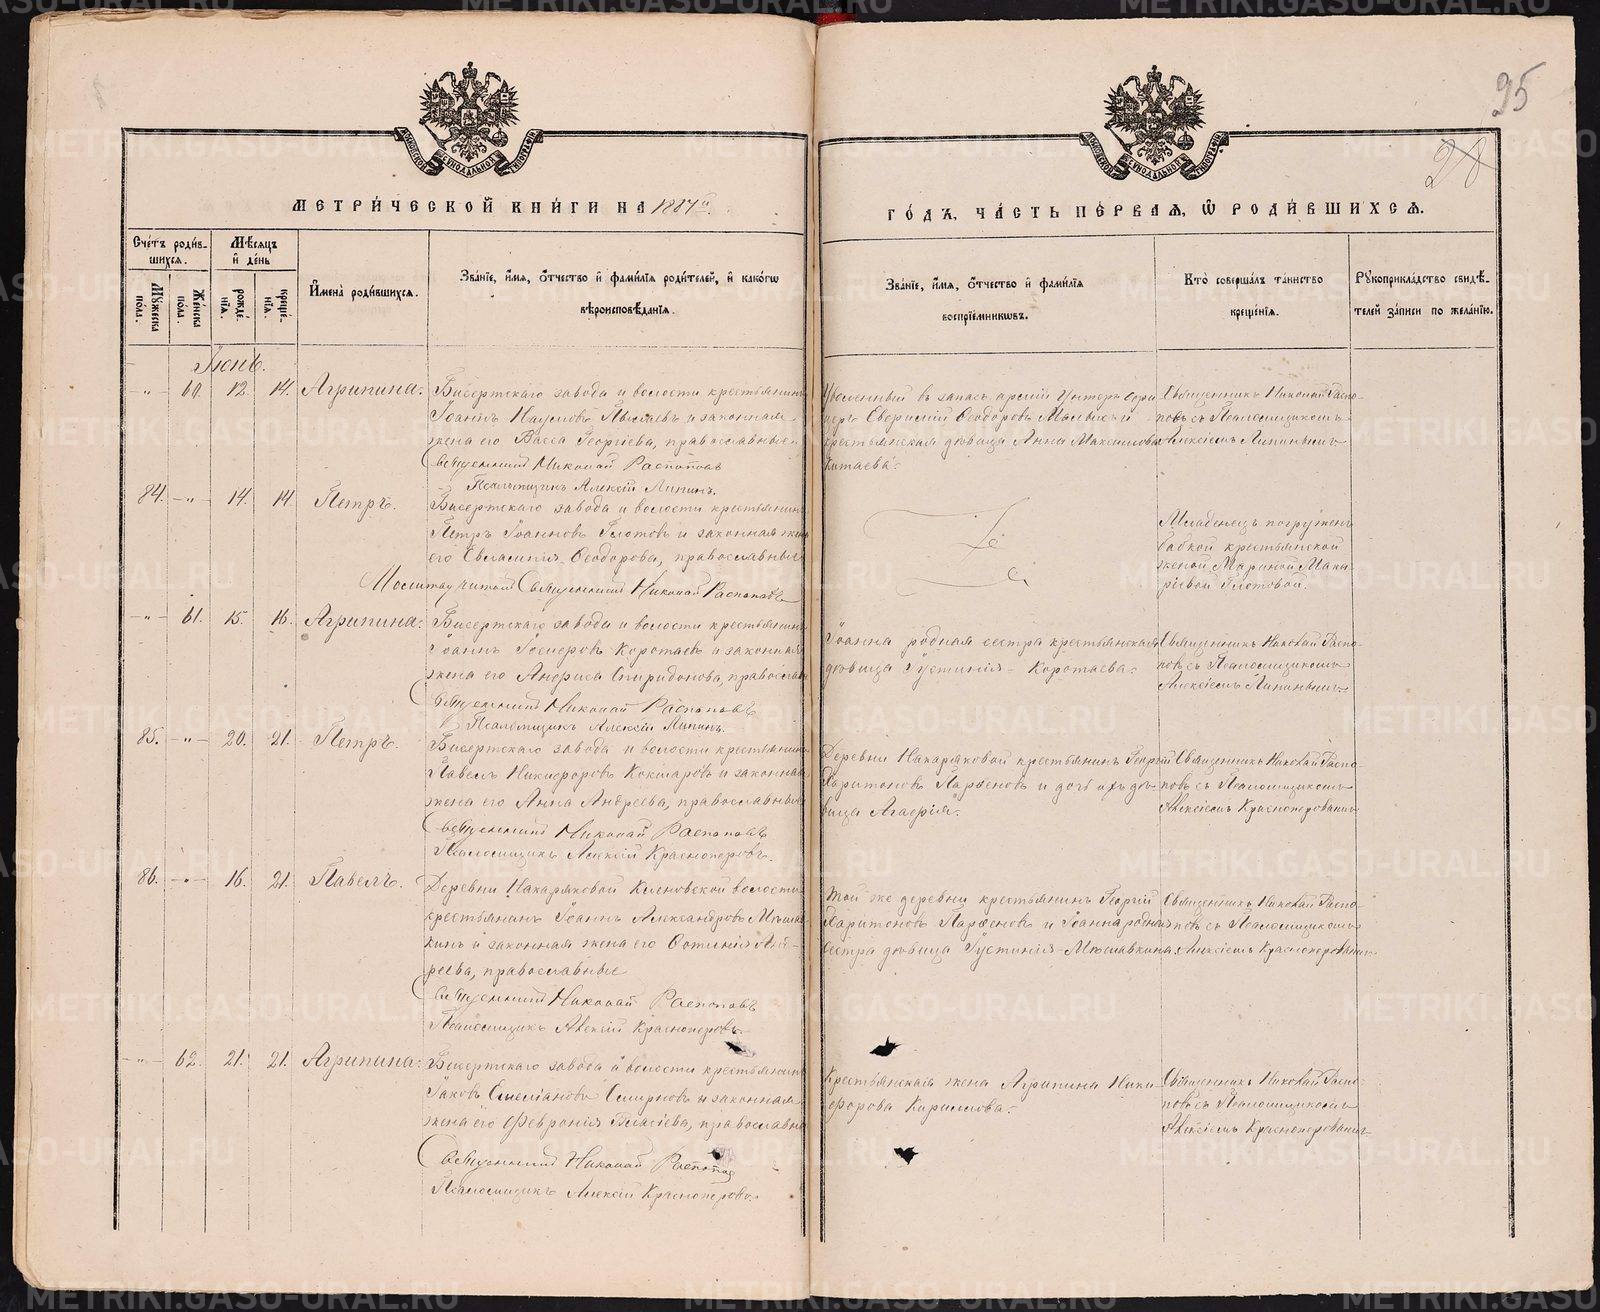 95
28
МЕТРИЧЕСКОЙ КНИГИ НА 1887й
ГОДЪ, ЧАСТЬ ПЕРВАЯ, Ѿ РОДИВШИХСЯ.
Счетъ родившихся.
Мужеска пола.
Женска пола.
Мѣсяцъ и день
рожденія.
крещенія.
Имена родившихся.
Званіе, имя, отчество и фамилія родителей, и какогѡ
вѣроисповѣданія.
Званіе, имя, отчество и фамилія
воспріемникѡвъ.
Кто совершалъ таинство
крещенія.
Рукоприкладство свидѣ-
телей записи по желанію.
Іюнь.
-"- 60. 12. 14. Агрипина.
Бисертскаго завода и волости крестьянинъ
Іоаннъ Наумовъ и законная
жена его Васса Георгіева, православные
Священникъ Николай Распоповъ
Псаломщикъ Алексій Липинъ.
Уволенный въ запасъ арміи Унтеръ офи
церъ Ѳеодоровъ и
крестьянская дѣвица Анна Максимова
Китаева.
Священникъ Николай Распо-
повъ съ Псаломщикомъ
Алексіемъ Липинымъ
84. -"- 14. 14 Петръ.
Бисертскаго завода и волости крестьянинъ
Петръ Іоанновъ Глотовъ и законная жена
его Евлампія Ѳеодорова, православные
Молитву читалъ Священникъ Николай Распоповъ
Младенецъ погруженъ
бабкой крестьянской
женой Мариной Мака
ріевой Глотовой.
-"- 61. 15. 16. Агрипина.
Бисертскаго завода и волости крестьянинъ
Іоаннъ Коротаевъ и законная
жена его Анфиса Спиридонова, православн
Священникъ Николай Распоповъ
Псаломщикъ Алексій Липинъ.
Іоанна родная сестра крестьянская
дѣвица Іустинія Коротаева.
Священникъ Николай Распо-
повъ съ Псаломщикомъ
Алексіемъ Липинымъ
85. -"- 20. 21. Петръ.
Бисертскаго завода и волости крестьянинъ
Павелъ Никифоровъ Кокшаровъ и законная
жена его Анна Андреева, православные
Священникъ Николай Распоповъ
Псаломщикъ Алексій Красноперовъ.
Деревни Накаряковой крестьянинъ Георгій
Харитоновъ Парѳеновъ и дочь ихъ дѣ
вица Агафія.
Священникъ Николай Распо-
повъ съ Псаломщикомъ
Алексіемъ Красноперовымъ
86. -"- 16. 21. Павелъ.
Деревни Накаряковой Кленовской волости
крестьянинъ Іоаннъ Александровъ Мѣшав
кинъ и законная жена его Фотинія Анд-
реева, православные
Священникъ Николай Распоповъ
Псаломщикъ Алексій Красноперовъ.
Той же деревни крестьянинъ Георгій
Харитоновъ Парѳеновъ и Іоанна родная
сестра дѣвица Іустинія Мѣшавкина
Священникъ Николай Распо-
повъ съ Псаломщикомъ
Алексіемъ Красноперовымъ
-"- 62. 21. 21. Агрипина.
Бисертскаго завода и волости крестьянинъ
Іаковъ Смирновъ и законная
жена его Февронія Власіева, православн
Священникъ Николай Распоповъ
Псаломщикъ Алексій Красноперовъ
Крестьянская жена Агрипина Ники-
форова Кириллова.
Священникъ Николай Распо-
повъ съ Псаломщикомъ
Алексіемъ Красноперовымъ
METRIKI.GASO-URAL.RU